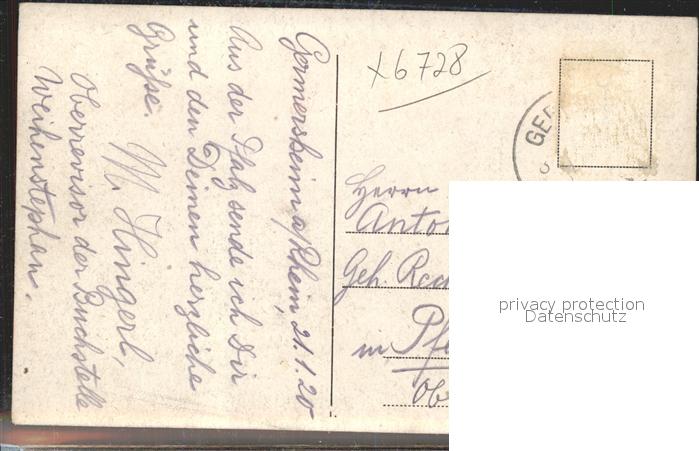 Germersheim a/Rhein, 21.1.20
Aus der Pfalz sende ich Dir
und den Deinen herzliche
Grüße.
M. Hingerl,
Oberrevisor der Buchstelle
Weihenstephan.
x6728
GER
Herrn
Anto
Geh.
in Pf
Ob
privacy protection
Datenschutz